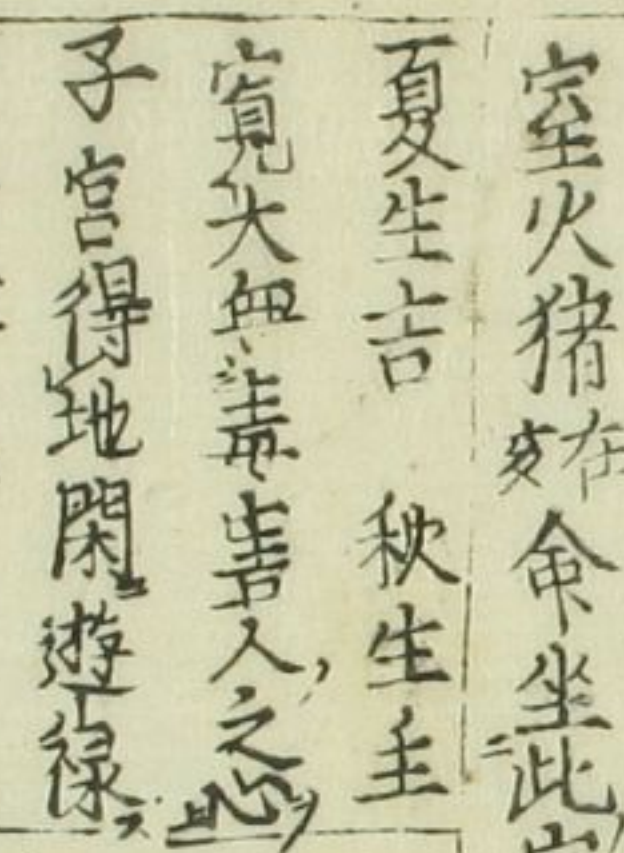 室火猪在亥命坐此宮
夏生吉 秋生主
寛大無毒害人之心
子宮得地閑遊禄